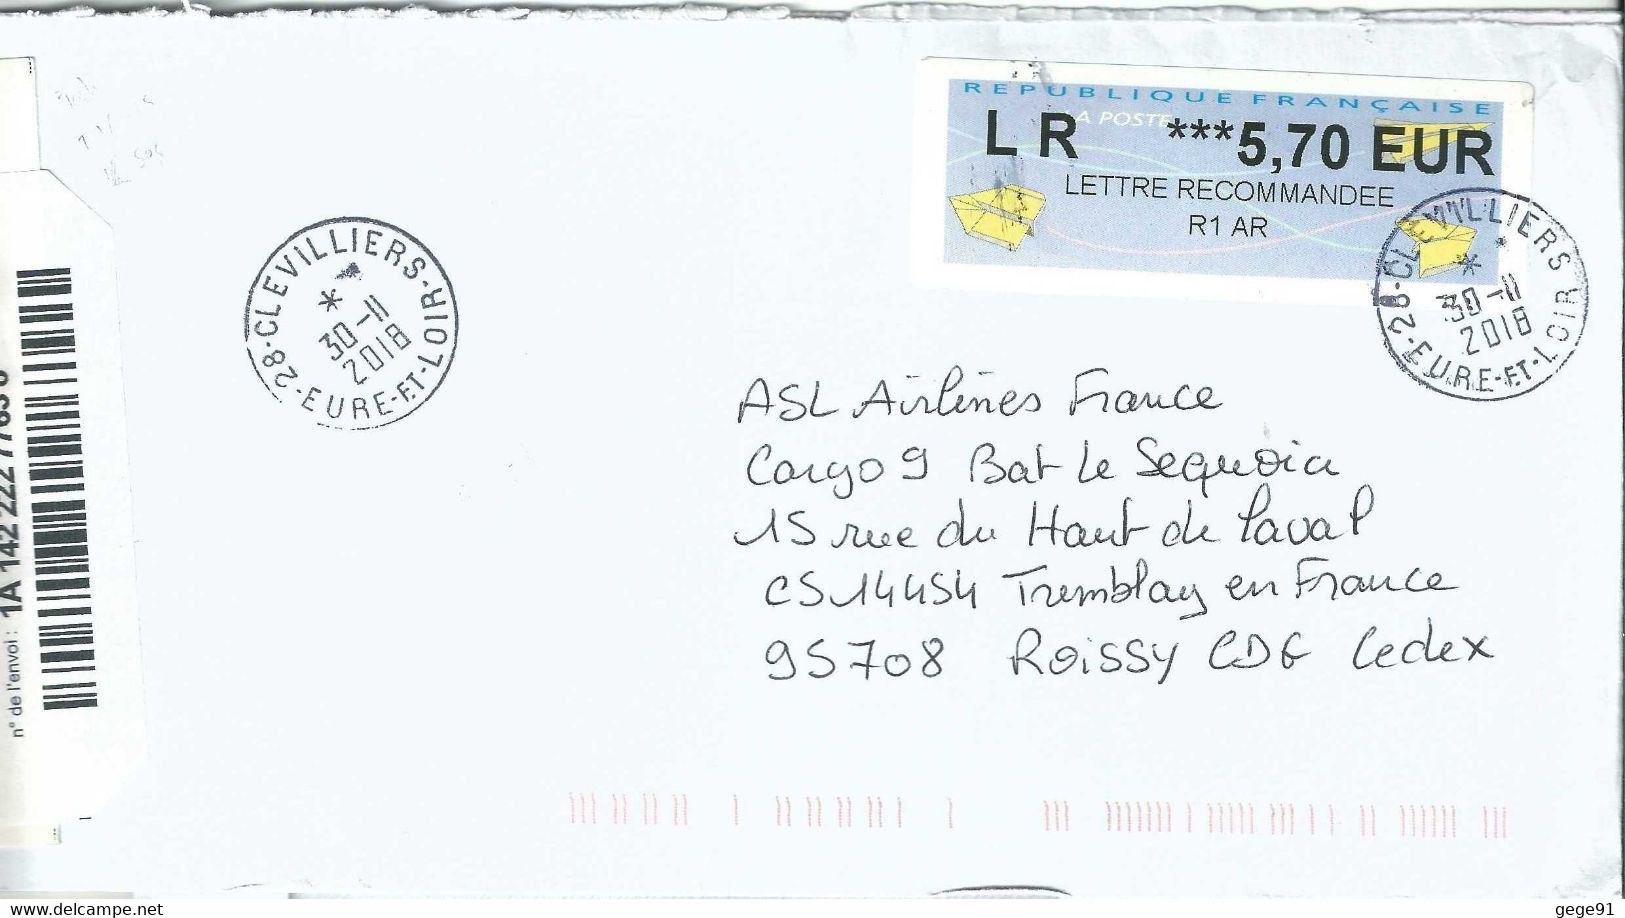 REPUBLIQUE FRANÇAISE
LA POSTE
LR ***5,70 EUR
LETTRE RECOMMANDEE
R1 AR
28-CLEVILLIERS
*
30-11
2018
EURE-ET-LOIR
28-CLEVILLIERS
*
30-11
2018
EURE-ET-LOIR
ASL Airlines France
Cargo 9 Bat Le Sequoia
15 rue du Haut de Laval
CS 14454 Tremblay en France
95708 ROISSY CDG Cedex
n° de l'envoi : 1A 142 222 7763
www.delcampe.net
gege91